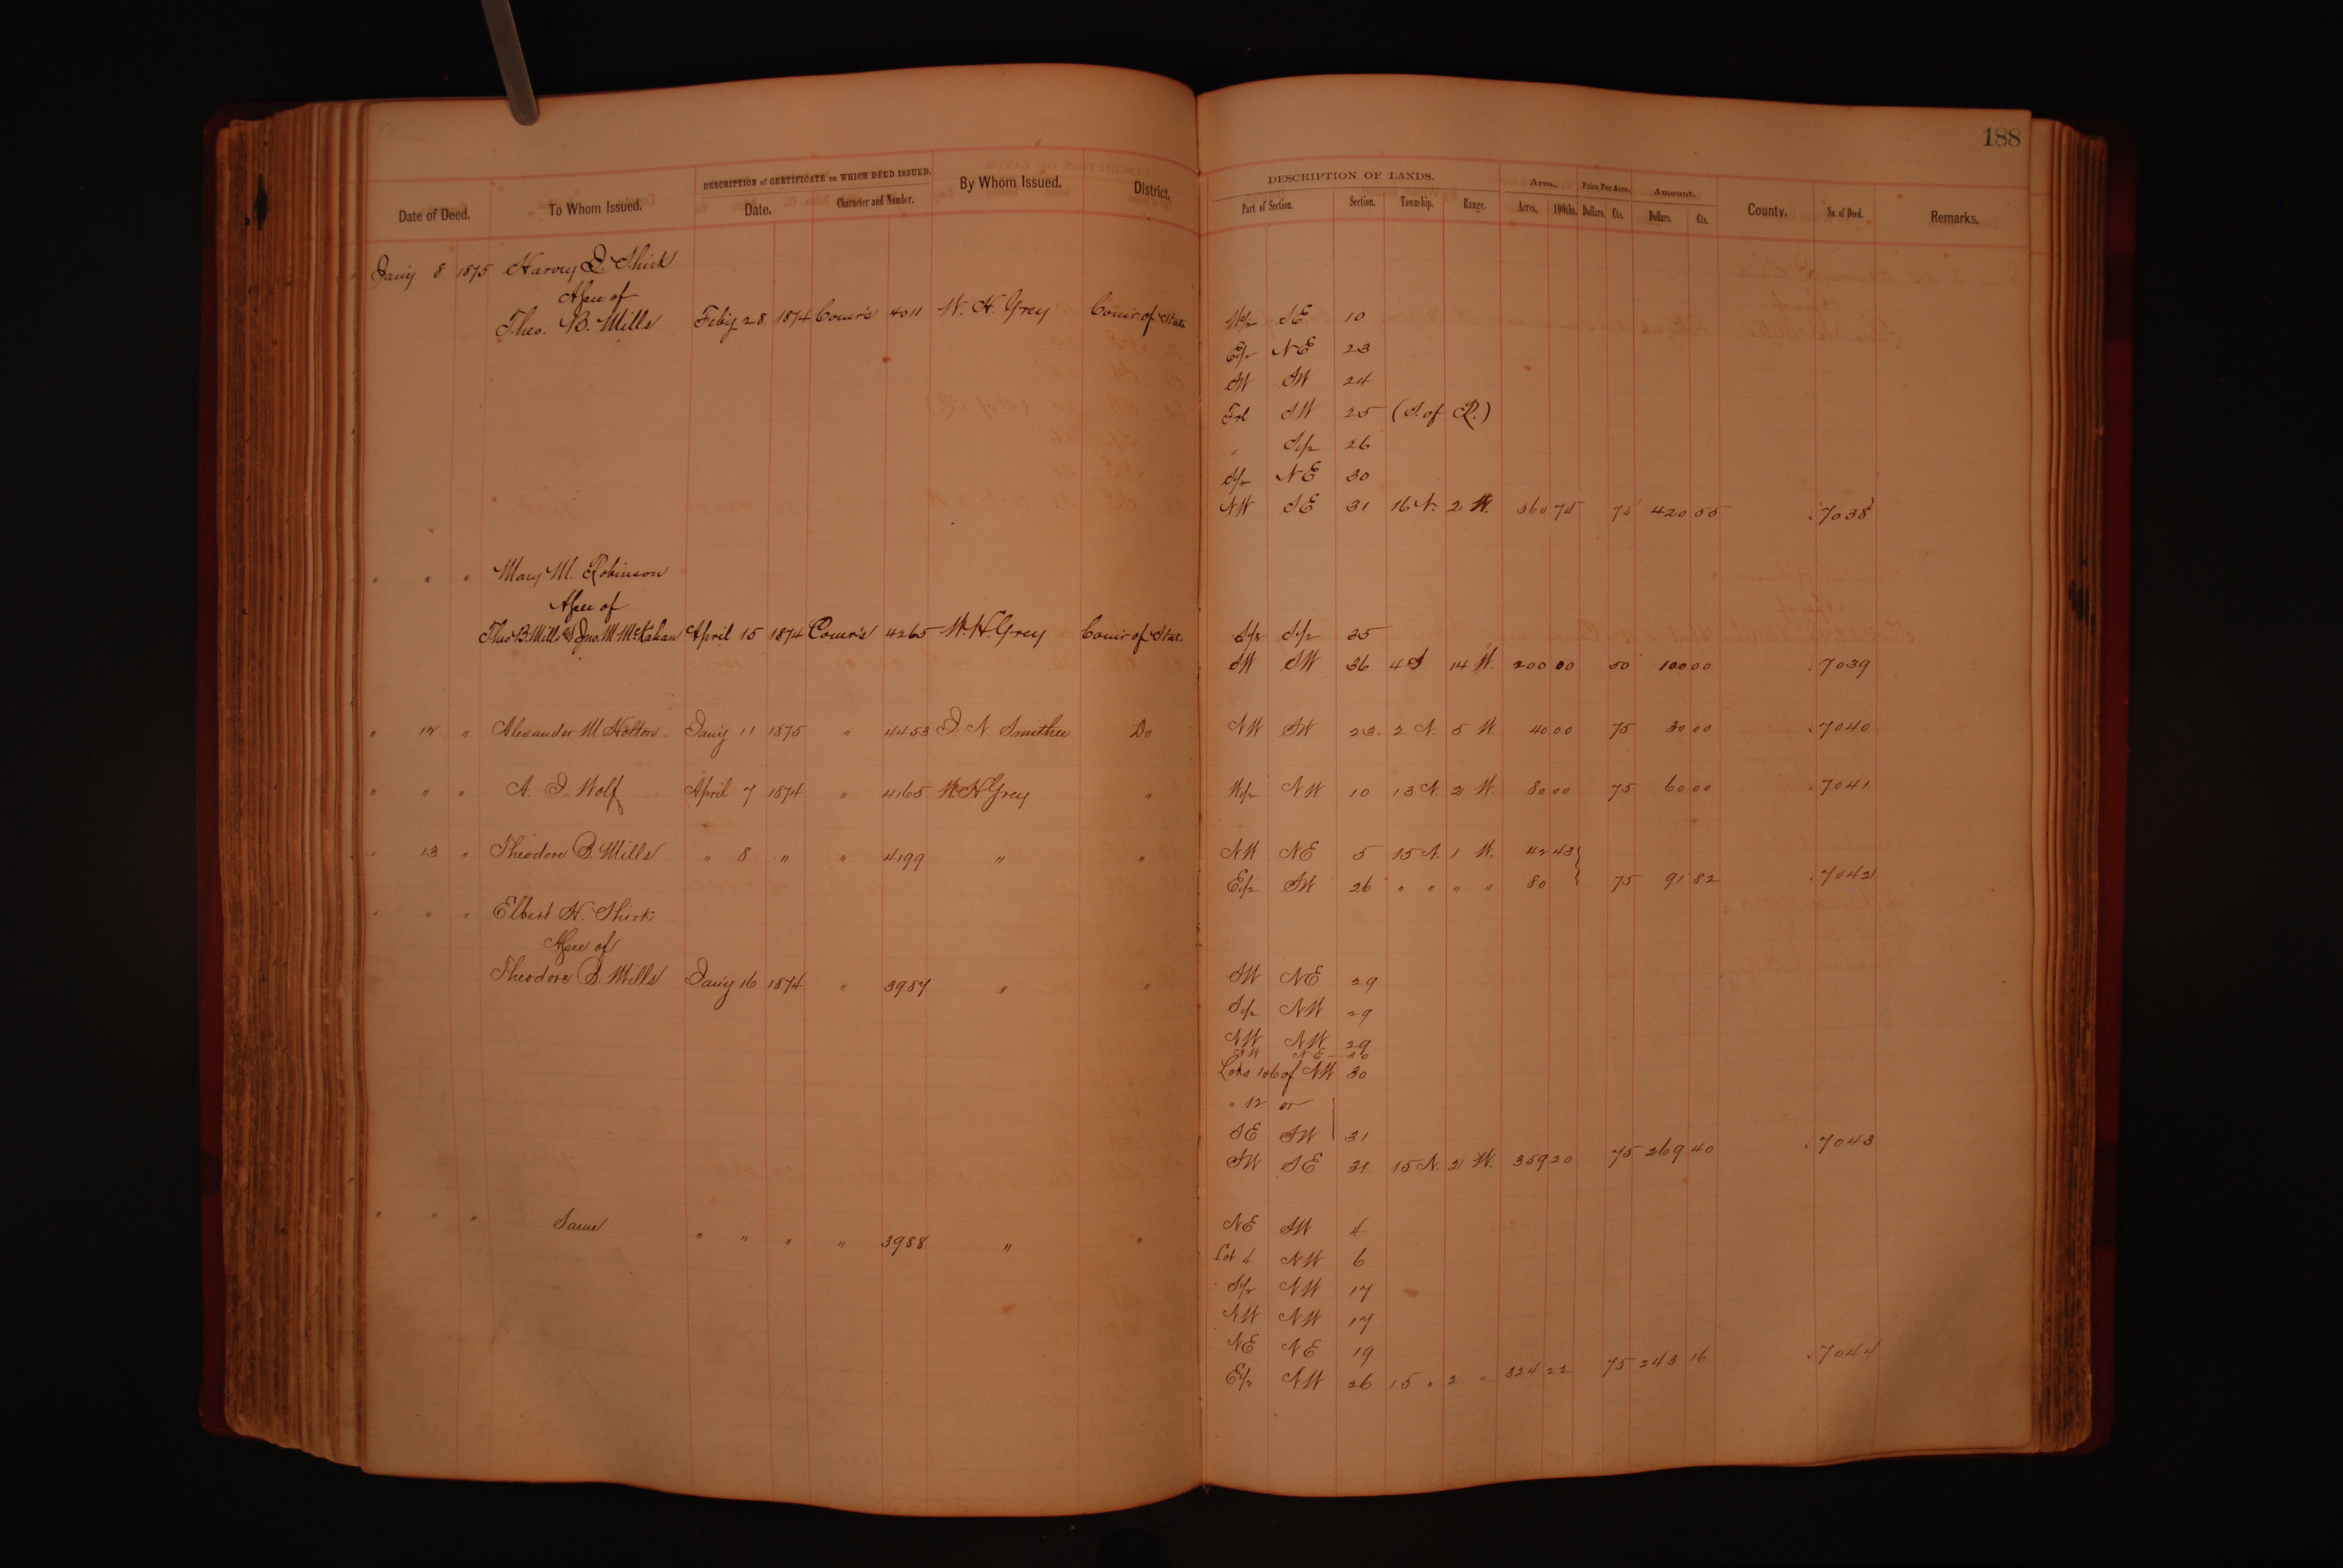 188
DESCRIPTION of CERTIFICATE on WHICH DEED ISSUED. DESCRIPTION OF LANDS. Area. Price Per Acre. Amount.
Date of Deed. To Whom Issued. Date. Character and Number. By Whom Issued. District. Part of Section. Section. Township. Range. Acres. 100ths. Dollars. Cts. Dollars. Cts. County. No. of Deed. Remarks.
Jan'y 8 1875 Harvey J. Shirk
Assee of
Theo. B. Mills Feb'y 28 1874 Comr's 4011 W. H. Grey Com'r of State W/2 SE 10
E/2 NE 23
SW SW 24
Frl SW 25 (S. of R.)
" S/2 26
S/2 NE 30
NW SE 31 16 N. 2 W. 560 74 75 420 55 7038
" " " Mary M. Robinson
Assee of
Theo B. Mills & Jno. M. McKahan April 15 1874 Comr's 4265 W. H. Grey Com'r of Stat. S/2 S/2 35
SW SW 36 4 S 14 W. 200 00 50 100 00 7039
" 12 " Alexander M. Holton Jan'y 11 1875 " 4453 J. N. Smithee Do NW SW 23 2 N. 5 W. 40 00 75 30 00 7040
" " " A. J. Wolf April 7 1874 " 4165 W H Grey " W/2 NW 10 13 N. 2 W. 80 00 75 60 00 7041
" 13 " Theodore B. Mills " 8 " " 4199 " " NW NE 5 15 N. 1 W. 42 43
E/2 SW 26 " " " " 80 75 91 82 7042
" " " Elbert H. Shirk
Assee of
Theodore B. Mills Jan'y 16 1874 " 3987 " " SW NE 29
S/2 NW 29
NW NW 29
NW NE 30
Lots 1 & 6 of NW 30
" 12 or
SE SW 31
SW SE 31 15 N. 2 W. 359 20 75 269 40 7043
" " " Same " " " " 3988 " " NE SW 4
Lot 4 NW 6
S/2 NW 17
NW NW 17
NE NE 19
E/2 NW 26 15 " 2 " 324 22 75 243 16 7044